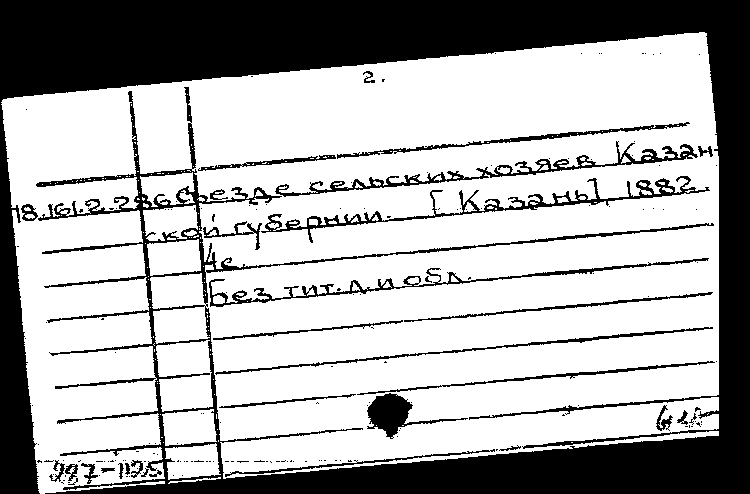 2.
18.161.2.286 Съезде сельских хозяев Казан-
ской губернии. [Казань], 1882.
4с.
Без тит. л. и обл.
287-1125